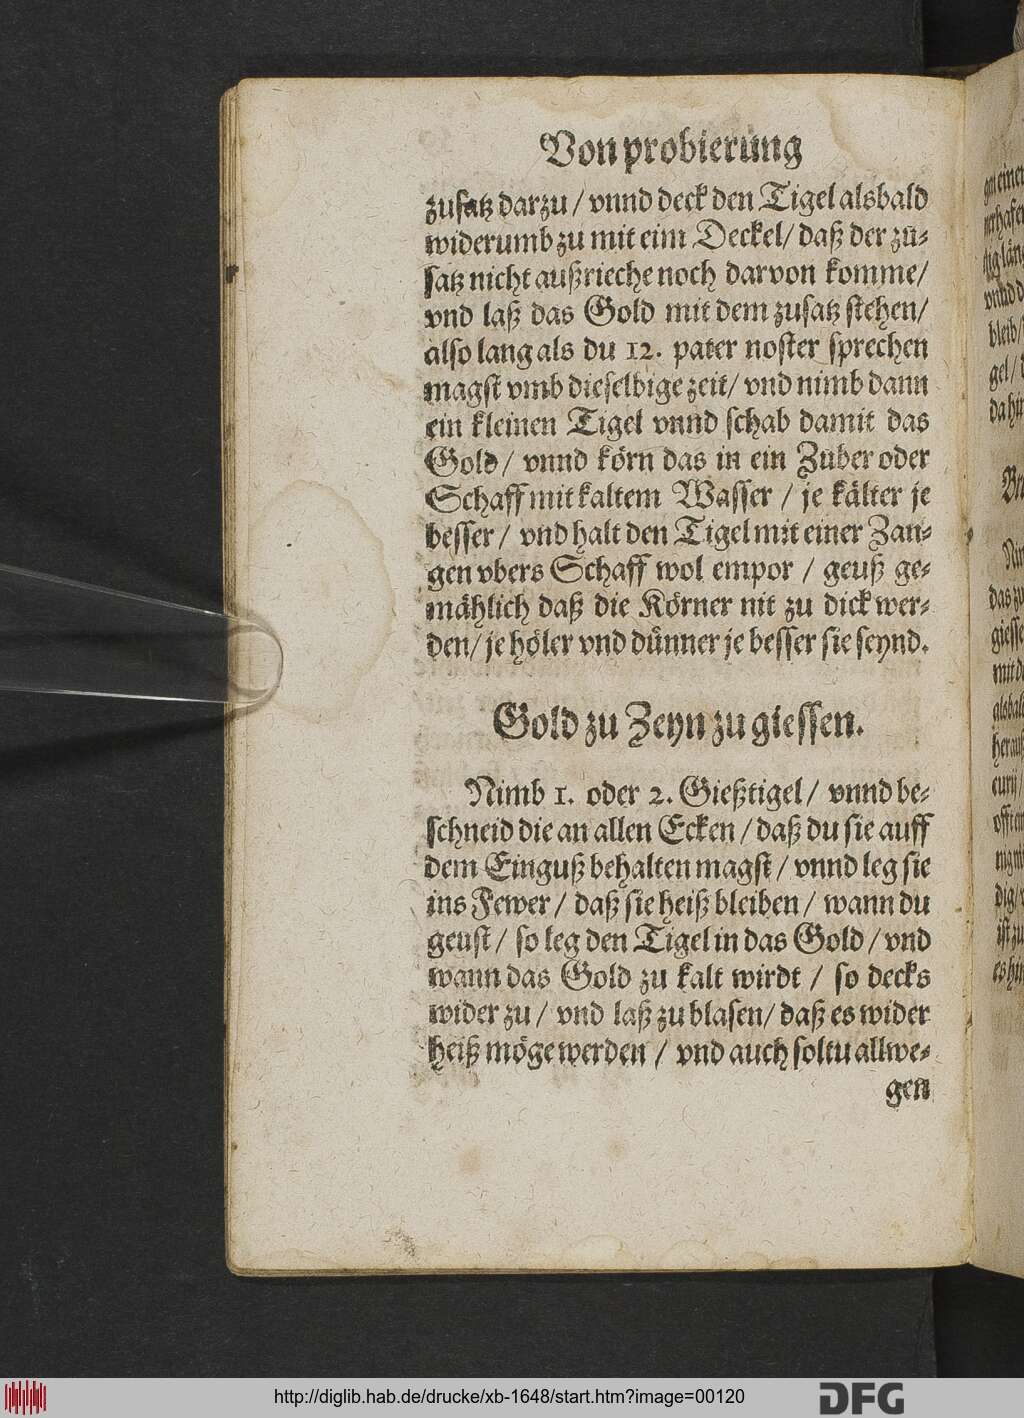 Von probierung
zusatz darzu / vnnd deck den Tigel alsbald
widerumb zu mit eim Deckel / daß der zu-
satz nicht außrieche noch darvon komme /
vnd laß das Gold mit dem zusatz stehen /
also lang als du 12. pater noster sprechen
magst vmb dieselbige zeit / vnd nimb dann
ein kleinen Tigel vnnd schab damit das
Gold / vnnd körn das in ein Zuber oder
Schaff mit kaltem Wasser / je kälter je
besser / vnd halt den Tigel mit einer Zan-
gen vbers Schaff wol empor / geuß ge-
mählich daß die Körner nit zu dick wer-
den / je höler vnd dünner je besser sie seynd.
Gold zu Zeyn zu giessen.
Nimb 1. oder 2. Gießtigel / vnnd be-
schneid die an allen Ecken / daß du sie auff
dem Einguß behalten magst / vnnd leg sie
ins Fewer / daß sie heiß bleiben / wann du
geust / so leg den Tigel in das Gold / vnd
wann das Gold zu kalt wirdt / so decks
wider zu / vnd laß zu blasen / daß es wider
heiß möge werden / vnd auch soltu allwe-
gen
http://diglib.hab.de/drucke/xb-1648/start.htm?image=00120
DFG